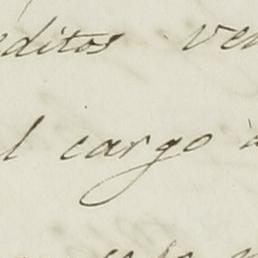 editos ven
l cargo à